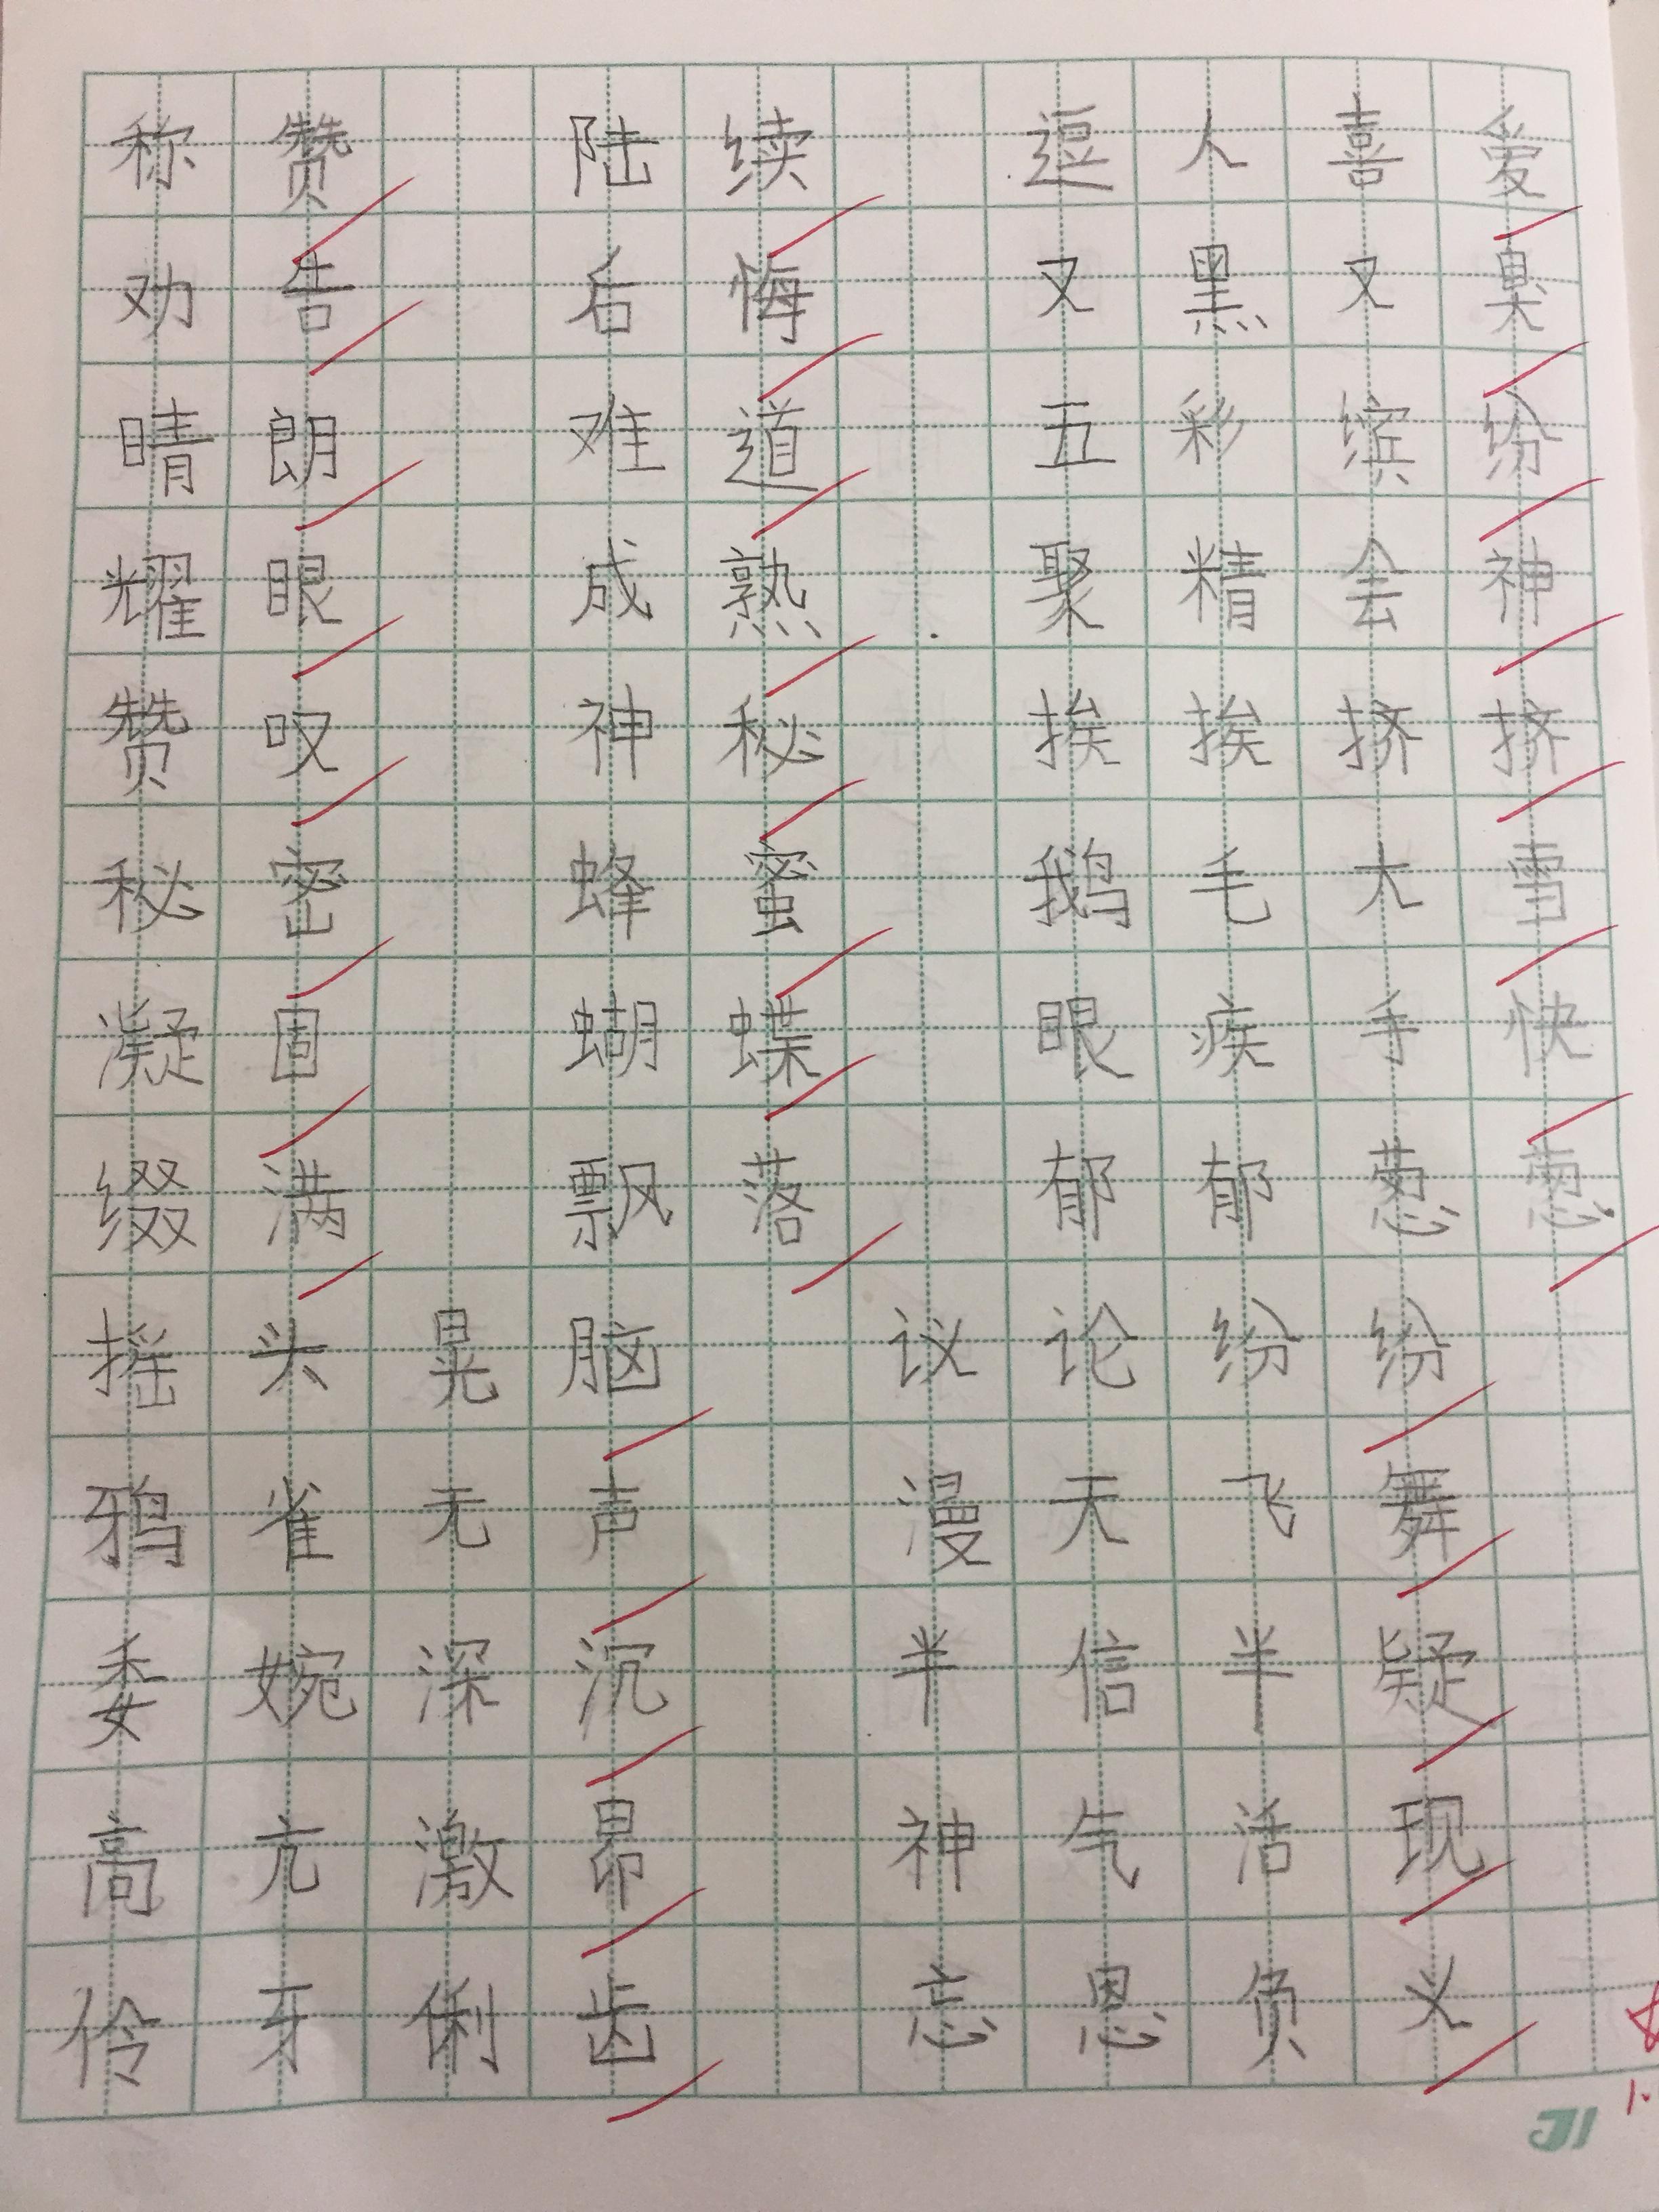 称赞 陆续 逗人喜爱
劝告 后悔 又黑又臭
晴朗 难道 五彩缤纷
耀眼 成熟 聚精会神
赞叹 神秘 挨挨挤挤
秘密 蜂蜜 鹅毛大雪
凝固 蝴蝶 眼疾手快
缀满 飘落 郁郁葱葱
摇头晃脑 议论纷纷
鸦雀无声 漫天飞舞
委婉深沉 半信半疑
高亢激昂 神气活现
伶牙俐齿 忘恩负义